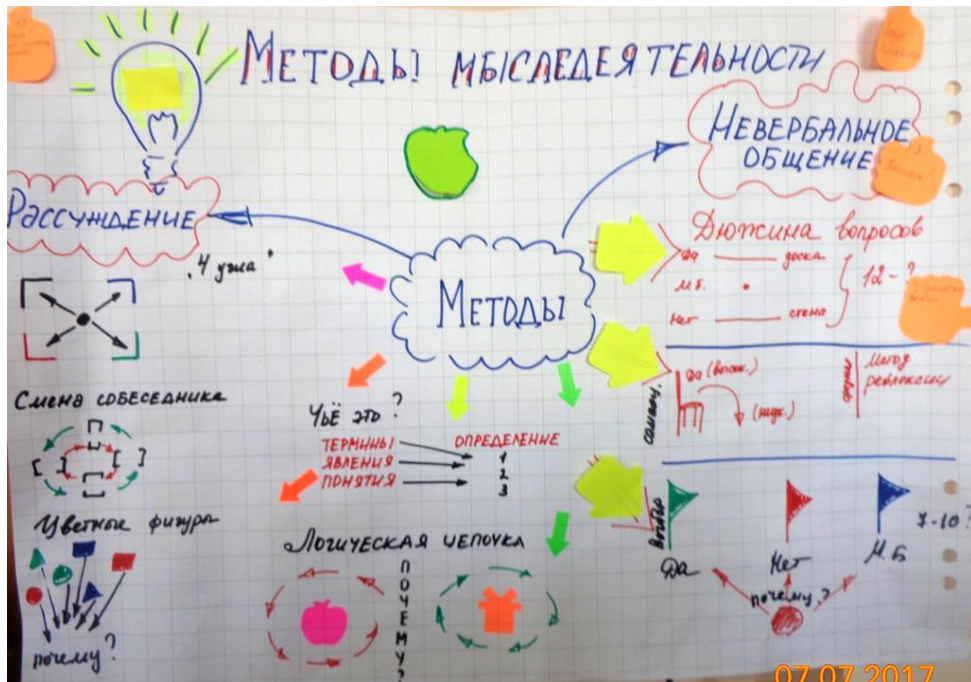 МЕТОДЫ МЫСЛЕДЕЯТЕЛЬНОСТИ
НЕВЕРБАЛЬНОЕ
ОБЩЕНИЕ
РАССУЖДЕНИЕ
МЕТОДЫ
"4 угла"
СМЕНА СОБЕСЕДНИКА
Цветные фигуры
почему?
Чьё это?
ТЕРМИНЫ
ЯВЛЕНИЯ
ПОНЯТИЯ
ОПРЕДЕЛЕНИЕ
1
2
3
ЛОГИЧЕСКАЯ ЦЕПОЧКА
ПОЧЕМУ?
Дюжина вопросов
Да доска
М.б.
Нет стена
12 - ?
Да
Метод
рефлексии
Выбор
Да
Нет
М.Б
7-10?
почему?
07.07.2017